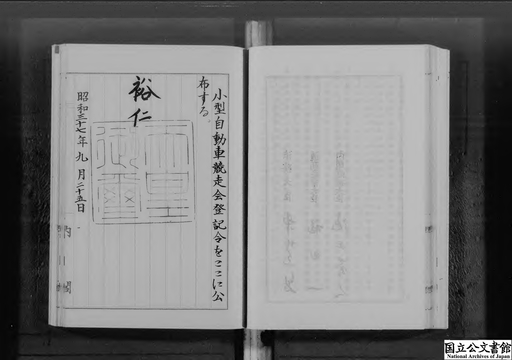 小型自動車競走会登記令をここに公
布する。
裕仁
天皇
御璽
昭和三十七年九月二十五日
内閣
国立公文書館
National Archives of Japan